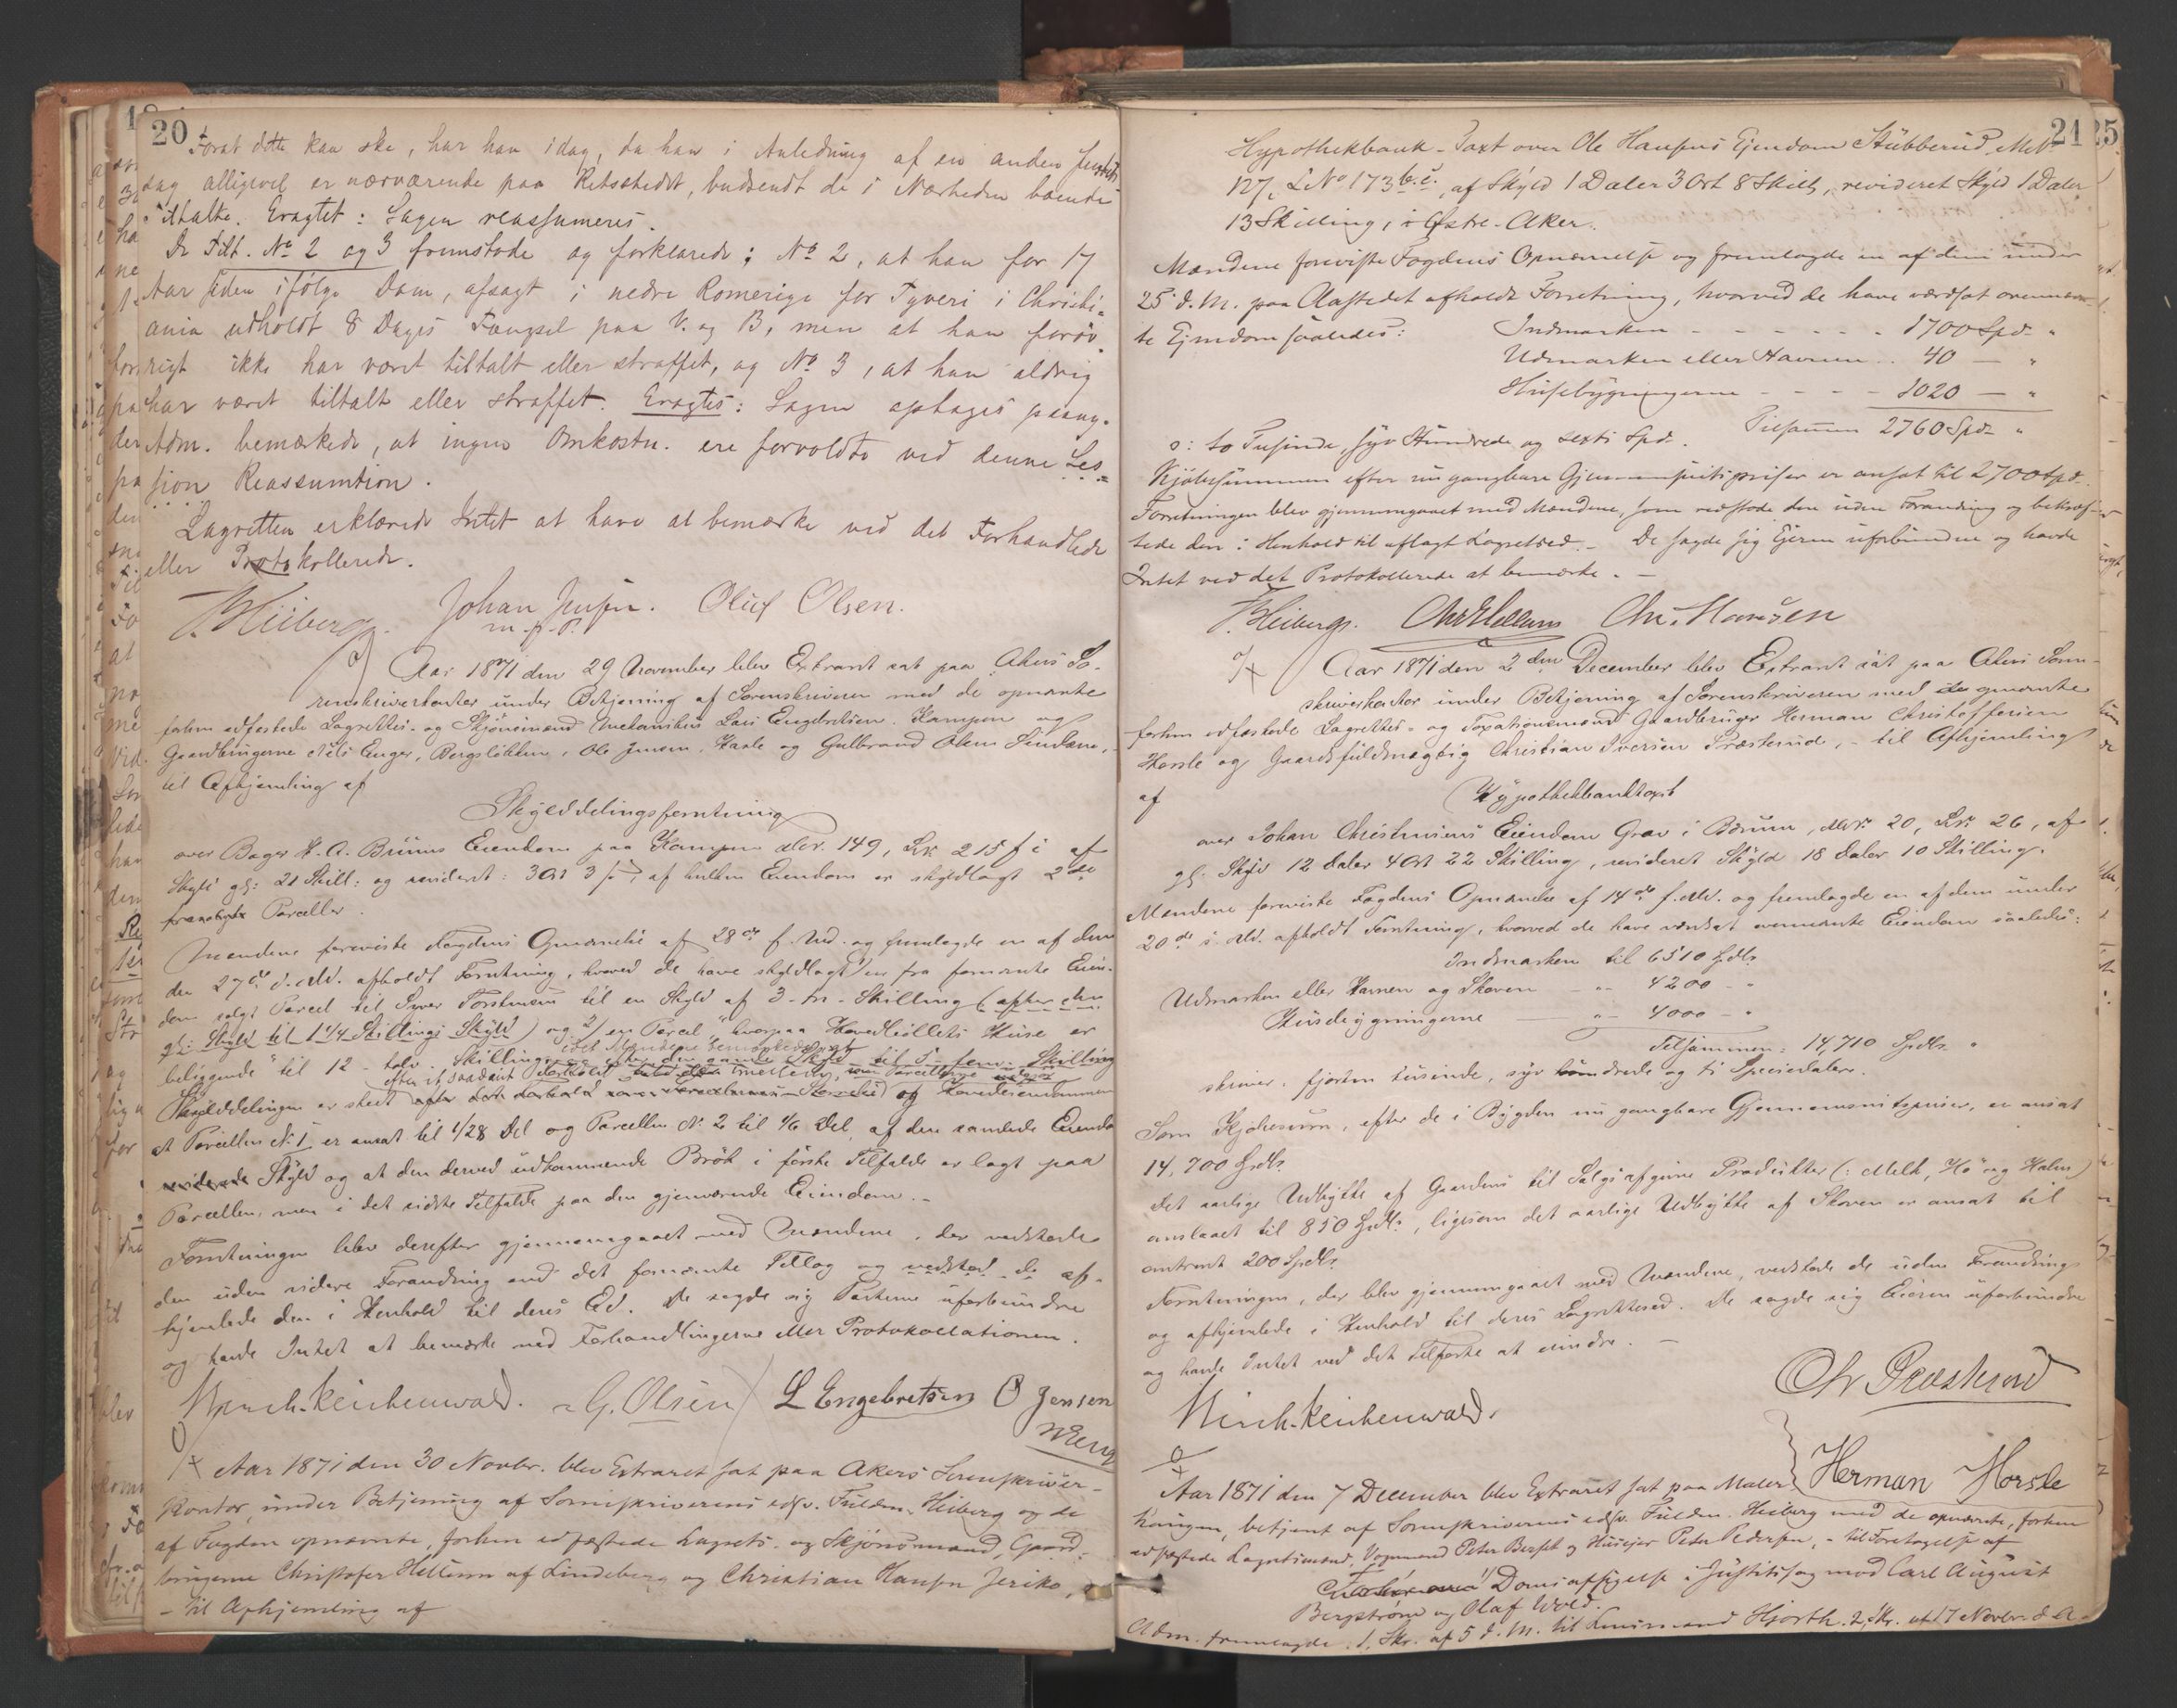 20
Forat dette kan ske, har han idag, da han i Anledning af en anden Justits
sag alligevel er nærværende paa Retsstedet, budsendt de i Nærheden boende
Tiltalte. Eragtet: Sagen reassumeres.
De Tilt. No 2 og 3 fremstode og forklarede: No 2, at han for 17
Aar siden ifølge Dom, afsagt i nedre Romerige for Tyveri i Christi-
ania udholdt 8 Dages Fængsel paa V. og B, men at han forøv-
rigt ikke har været tiltalt eller straffet, og No 3, at han aldrig
har været tiltalt eller straffet. Eragtes: Sagen optages paany.
Adm. bemærkede, at ingen Omkostn. ere forvoldte ved denne Ses-
sion Reassumtion.
Lagretten erklærede Intet at have at bemærke ved det Forhandlede
eller Protokollerede.
Heiberg. Johan Jensen. Oluf Olsen.
m. p. P.
Aar 1871 den 29 November blev Extraret sat paa Akers So-
renskriverkontor under Betjening af Sorenskriveren med de opnævnte
forhen edfæstede Lagrettes- og Skjønsmænd Mekanikus Lars Engebretsen Kampen og
Gaardbrugerne Nels Enger, Bergsløkken, Ole Jensen, Hasle og Gulbrand Olsen
til Afhjemling af
Skylddelingsforretning
over Bager H. A. Bruuns Eiendom paa Kampen Mtr. 149, Lr. 215 f i af
Skyld gl: 21 Skill: og revideret: 3 Ort 3 ß, af hvilken Eiendom er skyldlagt 2de
frasolgte Parceller.
Mændene foreviste Fogdens Opnævnelse af 28de f. Md. og fremlagde en af dem
den 27de d. Md. afholdt Forretning, hvorved de have skyldlagt en fra fornævnte Eien-
dom solgt Parcel til Syver Torstensen til en Skyld af 3 - tre - Skilling (efter den
gl: Skyld til 1 1/4 Skillings Skyld) og 2/ en Parcel "hvorpaa Hovedbøllets Huse er
beliggende" til 12 - tolv - Skilling, efter den gamle Skyld til 5 - fem - Skilling
idet Mændene bemærkede at
Skylddelingen er skeet efter et saadant Forhold mellem Parcellerne og Hovedeiendommen
at Parcellen No 1 er ansat til 1/28 Del og Parcellen No 2 til 1/6 Del af den samlede Eiendoms
reviderede Skyld og at den derved udkommende Brøk i første Tilfælde er lagt paa
Parcellen, men i det sidste Tilfælde paa den gjenværende Eiendom. -
Forretningen blev derefter gjennemgaaet med Mændene, der vedtoge
den uden videre Forandring end det fornævnte Tillæg og vedstod de af-
hjemlede den i Henhold til deres Ed. De sagde sig Parterne uforbundne
og havde Intet at bemærke ved Forhandlingerne eller Protokollationen.
Münch-Reichenwald. G. Olsen L Engebretsen O Jensen
N Eng
Aar 1871 den 30 Novbr. blev Extraret sat paa Akers Sorenskriver-
kontor, under Betjening af Sorenskriverens edsv. Fuldm. Heiberg og de
af Fogden opnævnte, forhen edfæstede Lagrets- og Skjønsmænd, Gaard-
brugerne Christofer Hellum af Lindeberg og Christian Hansen Jeriko,
- til Afhjemling af
21
Hypothekbank-Taxt over Ole Hansens Ejendom Stubberud Mtr
127, L No 173 b. c. af Skyld 1 Daler 3 Ort 8 Skill, revideret Skyld 1 Daler
13 Skilling, i Østre-Aker.
Mændene foreviste Fogdens Opnævnelse og fremlagde en af dem under
25 d. M. paa Aastedet afholdt Forretning, hvorved de have værdsat ovennævn-
te Ejendom saaledes: Indmarken - - - - - - 1700 Spd. "
Udmarken eller Havnen . . 40 — "
Husebygningerne - - - - 1020 — "
Tilsammen 2760 Spd. "
o: to Tusinde, syv Hundrede og sexti Spd.
Kjøbesummen efter nu gangbare Gjennemsnitspriser er ansat til 2700 Spd.
Forretningen blev gjennemgaaet med Mændene, som vedstode den uden Forandring og bekræf-
tede den i Henhold til aflagt Lagretsed. - De sagde sig Ejeren uforbundne og havde
Intet ved det Protokollerede at bemærke. —
Heiberg. Chr Hellum Chr. Hansen
Aar 1871 den 2den December blev Extraret sat paa Akers Soren-
skriverkontor under Betjening af Sorenskriveren med de opnævnte
forhen edfæstede Lagrettes- og Taxationsmænd Gaardbruger Herman Christoffersen
Horsle og Gaardsfuldmægtig Christian Iversen Præsterud, - til Afhjemling
af
Hypothekbanktaxt
over Johan Christensens Eiendom Grav i Bærum, Mtr. 20, Lr. 26, af
gl. Skyld 12 Daler 4 Ort 22 Skilling, revideret Skyld 18 Daler 10 Skilling.
Mændene foreviste Fogdens Opnævnelse af 14de f. Md. og fremlagde en af dem under
20de s. Md. afholdt Forretning, hvorved de have værdsat ovennævnte Eiendom saaledes:
Indmarken til 6510 Spdlr.
Udmarken eller Havnen og Skoven - " - 4200 - "
Husebygningerne — " - 4000 - "
Tilsammen: 14,710 Spdlr. "
skriver: fjorten tusinde, syv hundrede og ti Speciedaler.
Som Kjøbesum, efter de i Bygden nu gangbare Gjennemsnitspriser, er ansat
14,700 Spdlr.
Det aarlige Udbytte af Gaardens til Salgs afgivne Produkter (: Melk, Hø og Halm)
anslaaet til 850 Spdlr., ligesom det aarlige Udbytte af Skoven er ansat til
omtrent 200 Spdlr.
Forretningen, der blev gjennemgaaet med Mændene, vedstode de uden Forandring
og afhjemlede i Henhold til deres Lagrettesed. De sagde sig Eieren uforbundne
og havde Intet ved det Tilførte at erindre. —
Münch-Reichenwald. Chr Præsterud
Herman Horsle
Aar 1871 den 7 December blev Extraret sat paa Maler-
haugen, betjent af Sorenskriverens edsv. Fuldm. Heiberg med de opnævnte, forhen
edfæstede Lagretsmænd, Vognmand Peter Berset og Husejer Peter Pedersen, - til Foretagelse af
Domsafsigelse i Justitssag mod Carl August
Bergstrøm og Olaf Wold.
Adm. fremlagde 1, Skr. af 5 d. M. til Lensmand Hjorth. 2, Skr. af 17 Novbr. d. A.